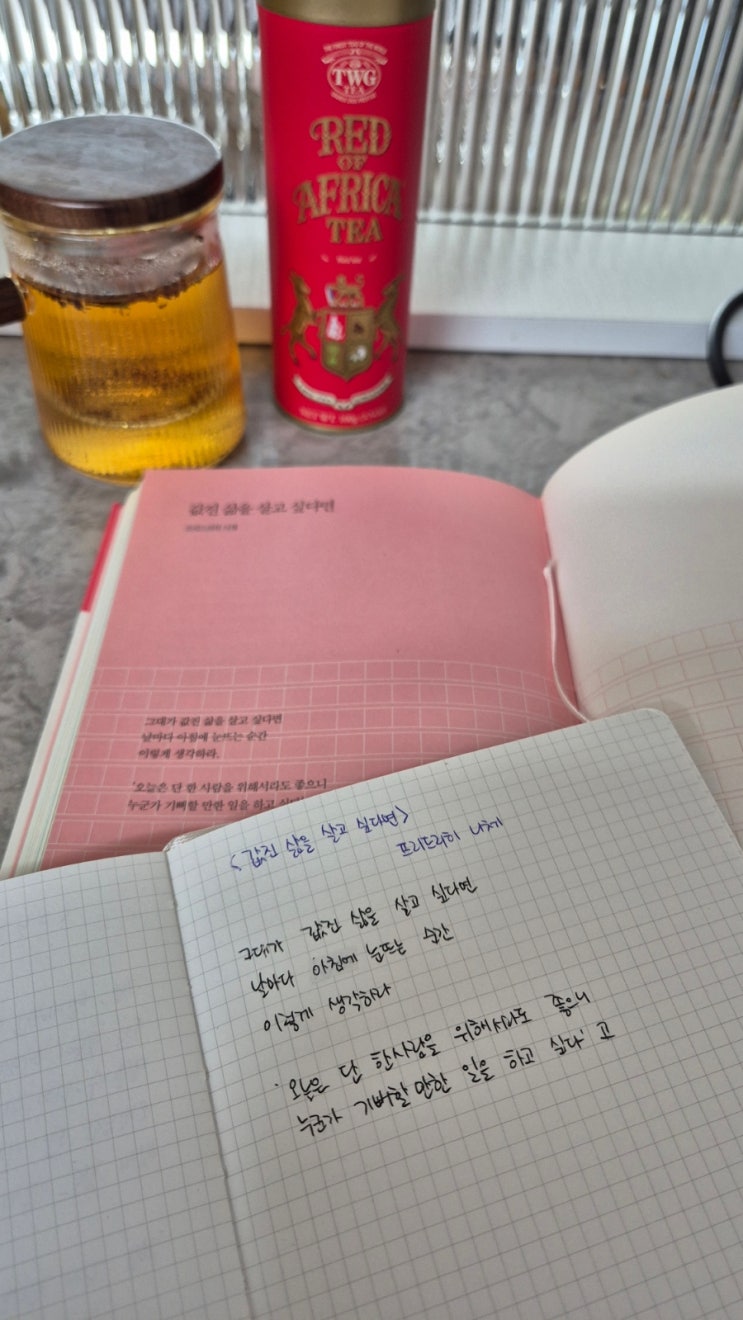 TWG
TEA
RED
OF
AFRICA
TEA
값진 삶을 살고 싶다면
프리드리히 니체
그대가 값진 삶을 살고 싶다면
날마다 아침에 눈뜨는 순간
이렇게 생각하라.
'오늘은 단 한 사람을 위해서라도 좋으니
누군가 기뻐할 만한 일을 하고
<값진 삶을 살고 싶다면>
프리드리히 니체
그대가 값진 삶을 살고 싶다면
날마다 아침에 눈뜨는 순간
이렇게 생각하라
'오늘은 단 한사람을 위해서라도 좋으니
누군가 기뻐할 만한 일을 하고 싶다'고